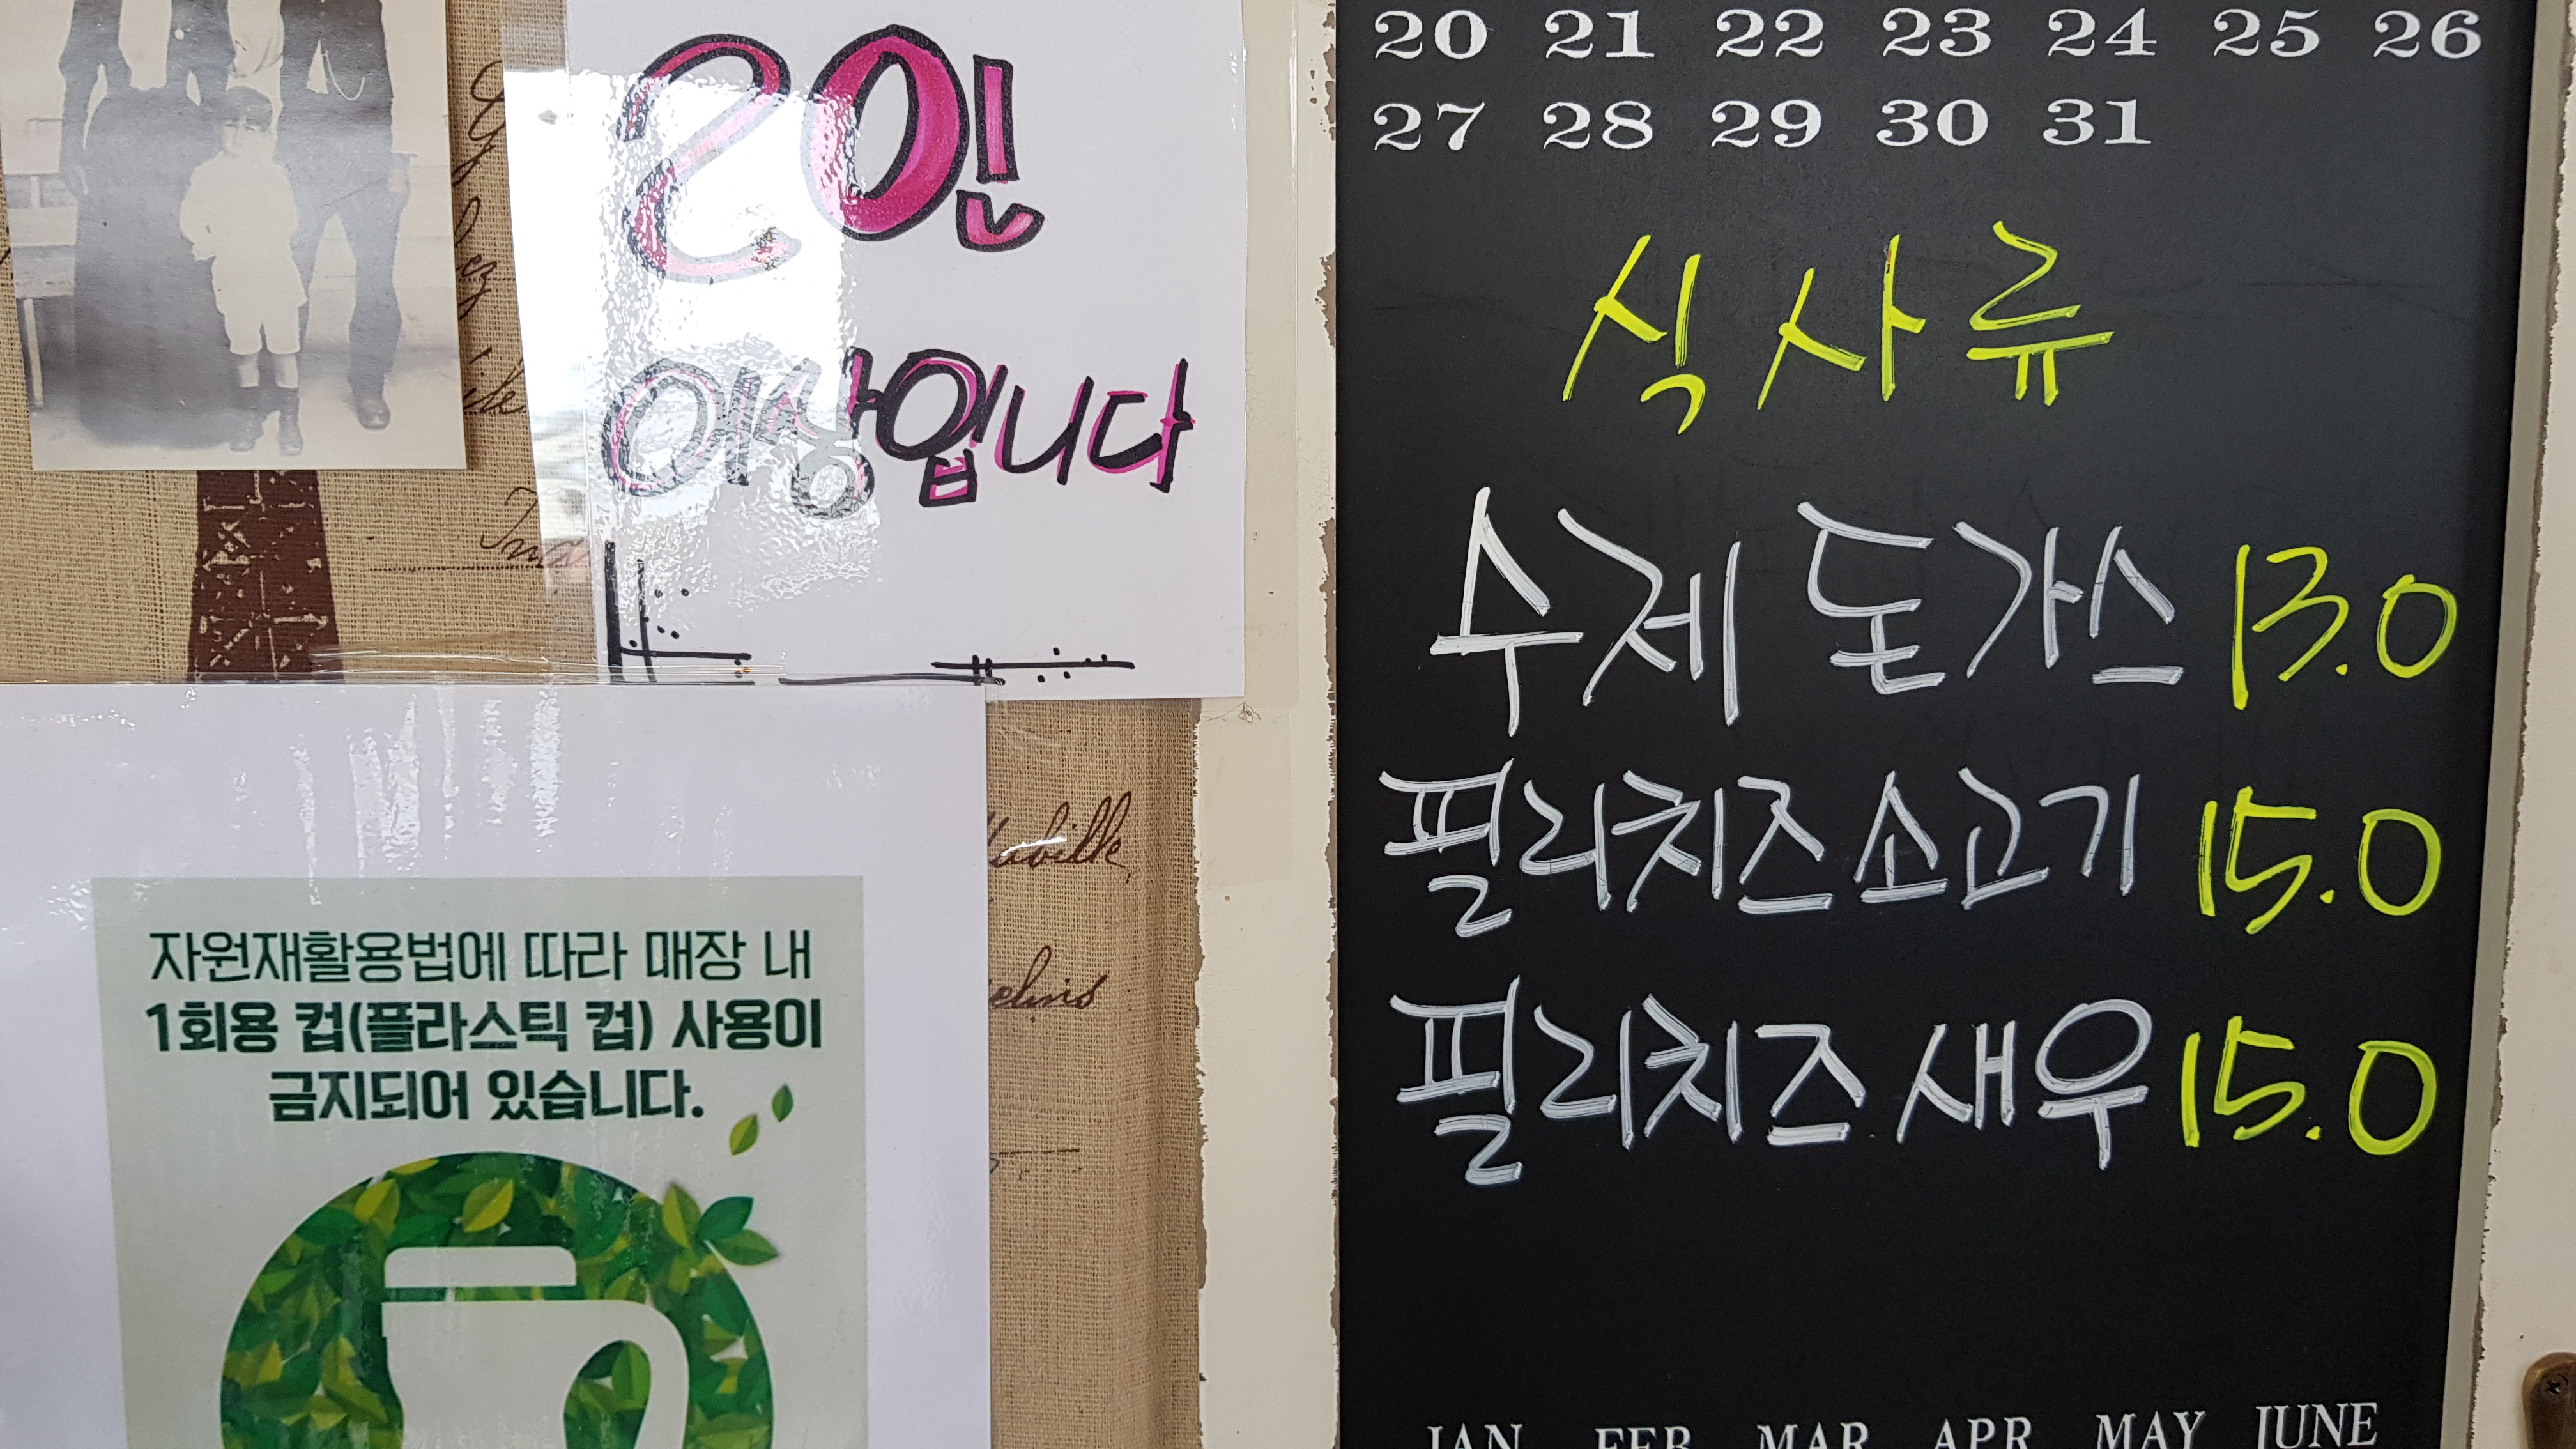 20인
이상입니다
자원재활용법에 따라 매장 내
1회용 컵(플라스틱 컵) 사용이
금지되어 있습니다.
20 21 22 23 24 25 26
27 28 29 30 31
식사류
수제 돈가스 13.0
필리치즈 소고기 15.0
필리치즈 새우 15.0
JAN FEB MAR APR MAY JUNE